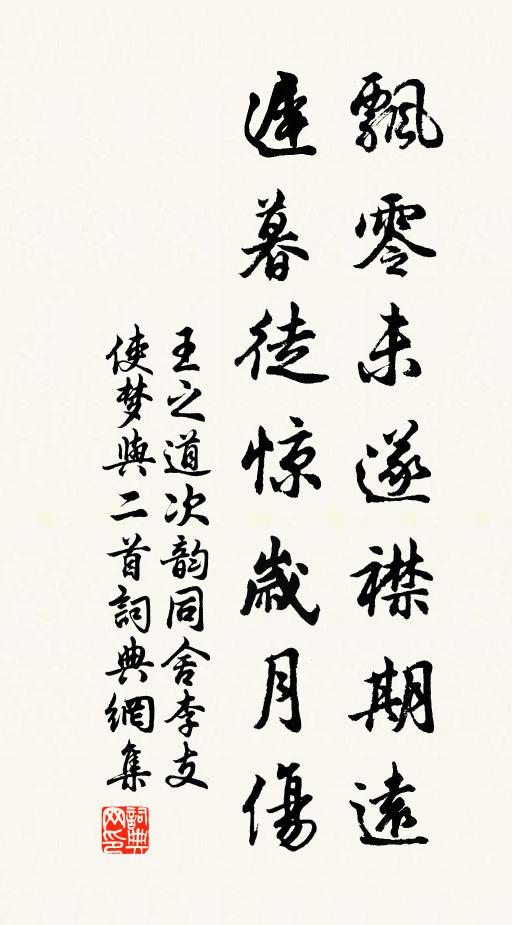 飄零未遂襟期遠
遲暮徒惊歲月傷
王之道次韵同舍李支
使梦與二首詞典網集
詞典网印